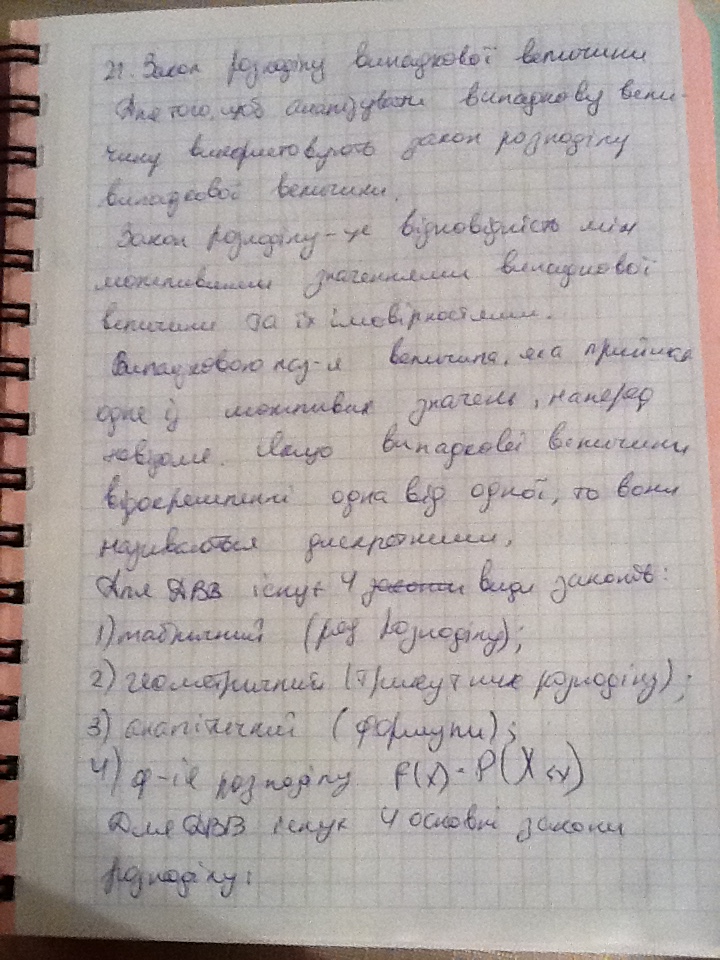 21. Закон розподілу випадкової величини
Для того щоб аналізувати випадкову вели-
чину використовують закон розподілу
випадкової величини.
Закон розподілу - це відповідність між
можливими значеннями випадкової
величини та їх імовірностями.
Випадковою наз-я величина, яка приймає
одне із можливих значень, наперед
невідоме. Якщо випадкові величини
відокремлені одна від одної, то вони
називаються дискретними.
Для ДВВ існує 4 види законів:
1) табличний (ряд розподілу);
2) геометричний (трикутник розподілу);
3) аналітичний (формули);
4) ф-ія розподілу F(x) = P(X<x)
Для ДВВ існує 4 основні закони
розподілу: